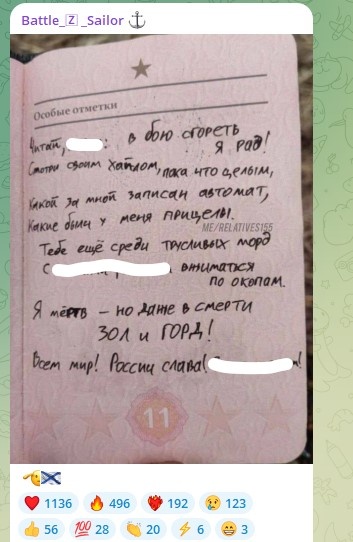 Battle_🇿_Sailor ⚓
Особые отметки
Читай, : в бою сгореть
Я рад!
Смотри своим хайлом, пока что целым,
Какой за мной записан автомат,
Какие были у меня прицелы.
ME/RELATIVES155
Тебе ещё среди трусливых морд
С вжиматься
по окопам.
Я мёртв – но даже в смерти
ЗОЛ и ГОРД!
Всем мир! России слава!
11
1136
496
192
123
56
28
20
6
3